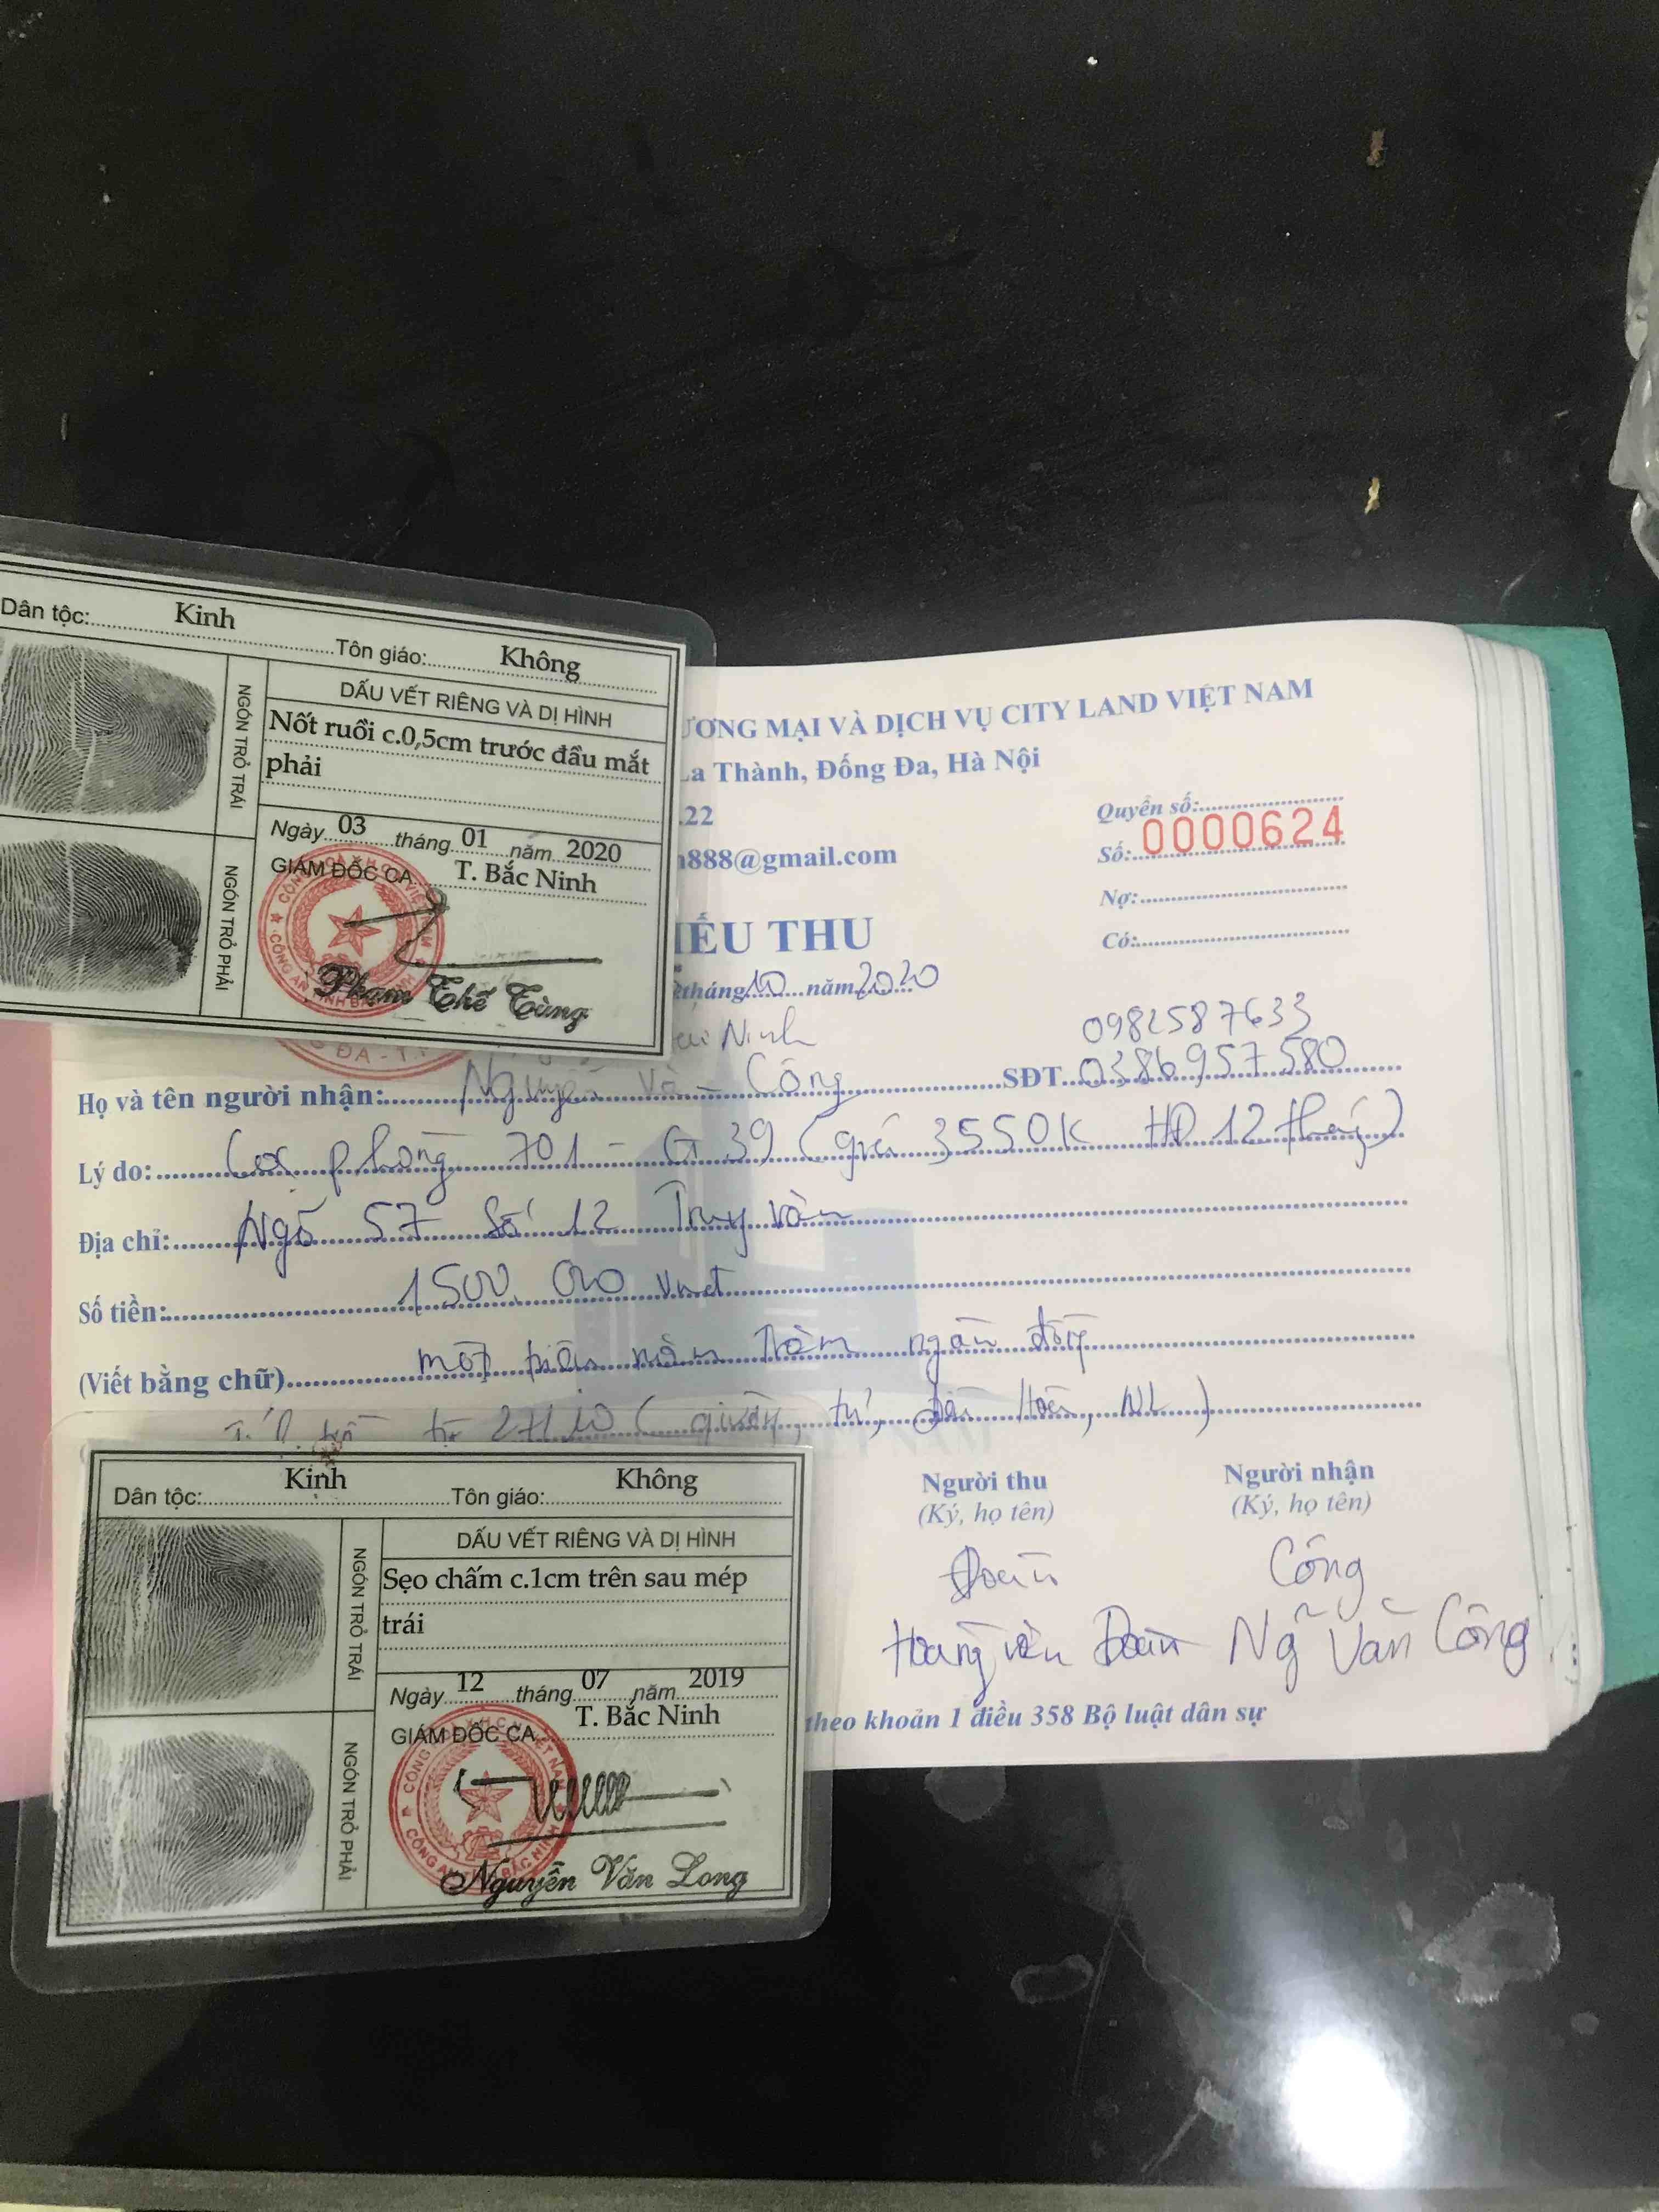 Dân tộc: Kinh Tôn giáo: Không
NGÓN TRỎ TRÁI
DẤU VẾT RIÊNG VÀ DỊ HÌNH
Nốt ruồi c.0,5cm trước đầu mắt
phải
NGÓN TRỎ PHẢI
Ngày 03 tháng 01 năm 2020
GIÁM ĐỐC CA T. Bắc Ninh
Phạm Thế Tùng
ƯƠNG MẠI VÀ DỊCH VỤ CITY LAND VIỆT NAM
La Thành, Đống Đa, Hà Nội
.22
888@gmail.com
Quyển số:
Số: 0000624
Nợ:
Có:
IẾU THU
tháng 10 năm 2020
Ninh
0982587633
Họ và tên người nhận: Nguyễn Văn Công SĐT 0386957580
Lý do: Cọc phòng 701 - G39 (giá 3550K HĐ 12 tháng)
Địa chỉ: Ngõ 57 Số 12
Số tiền: 1500.000 vnđ
(Viết bằng chữ) một triệu năm trăm ngàn đồng
từ 27/10 (giường, tủ, điều hòa, NL)
Người thu
(Ký, họ tên)
Đoàn
Hoàng văn Đoàn
Người nhận
(Ký, họ tên)
Công
Ng~ Văn Công
theo khoản 1 điều 358 Bộ luật dân sự
Dân tộc: Kinh Tôn giáo: Không
NGÓN TRỎ TRÁI
DẤU VẾT RIÊNG VÀ DỊ HÌNH
Sẹo chấm c.1cm trên sau mép
trái
NGÓN TRỎ PHẢI
Ngày 12 tháng 07 năm 2019
GIÁM ĐỐC CA T. Bắc Ninh
Nguyễn Văn Long